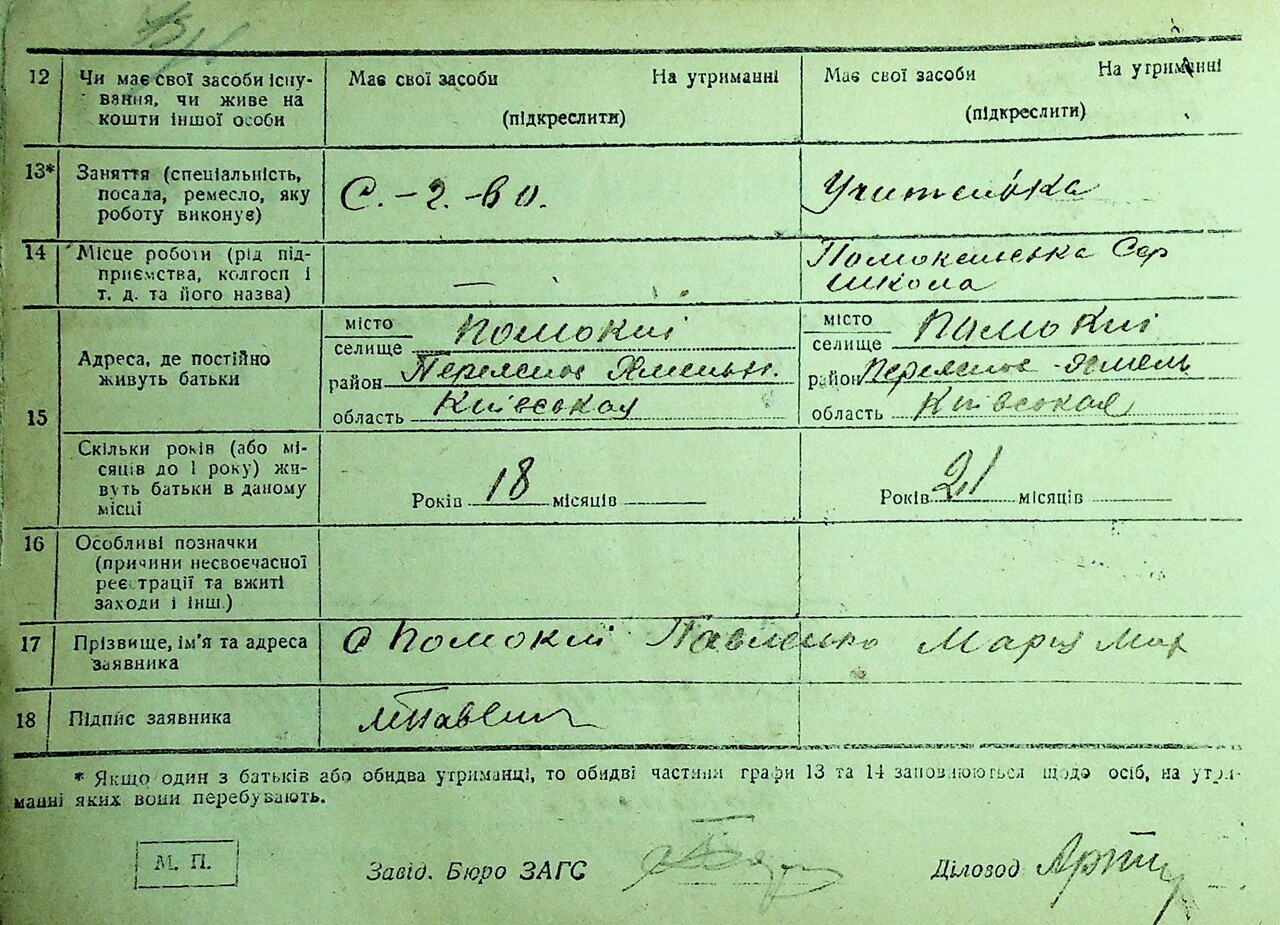 12 Чи має свої засоби існу-
вання, чи живе на
кошти іншої особи
Має свої засоби На утриманні
(підкреслити)
Має свої засоби На утриманні
(підкреслити)
13* Заняття (спеціальність,
посада, ремесло, яку
роботу виконує)
С.-г.-во.
Учителька
14 Місце роботи (рід під-
приємства, колгосп і
т. д. та його назва)
—
Помокельська Сер
школа
15 Адреса, де постійно
живуть батьки
місто
селище Помоклі
район Переяслов Хмельн.
область Київська
місто
селище Помоклі
район Переяслов-Хмель
область Київська
Скільки років (або мі-
сяців до 1 року) жи-
вуть батьки в даному
місці
Років 18 місяців
Років 21 місяців
16 Особливі позначки
(причини несвоєчасної
реєстрації та вжиті
заходи і інш.)
17 Прізвище, ім'я та адреса
заявника
с Помоклі Павленко Марія Мар
18 Підпис заявника
* Якщо один з батьків або обидва утриманці, то обидві частини графи 13 та 14 заповнюються щодо осіб, на утри-
манні яких вони перебувають.
М. П.
Завід. Бюро ЗАГС
Діловод